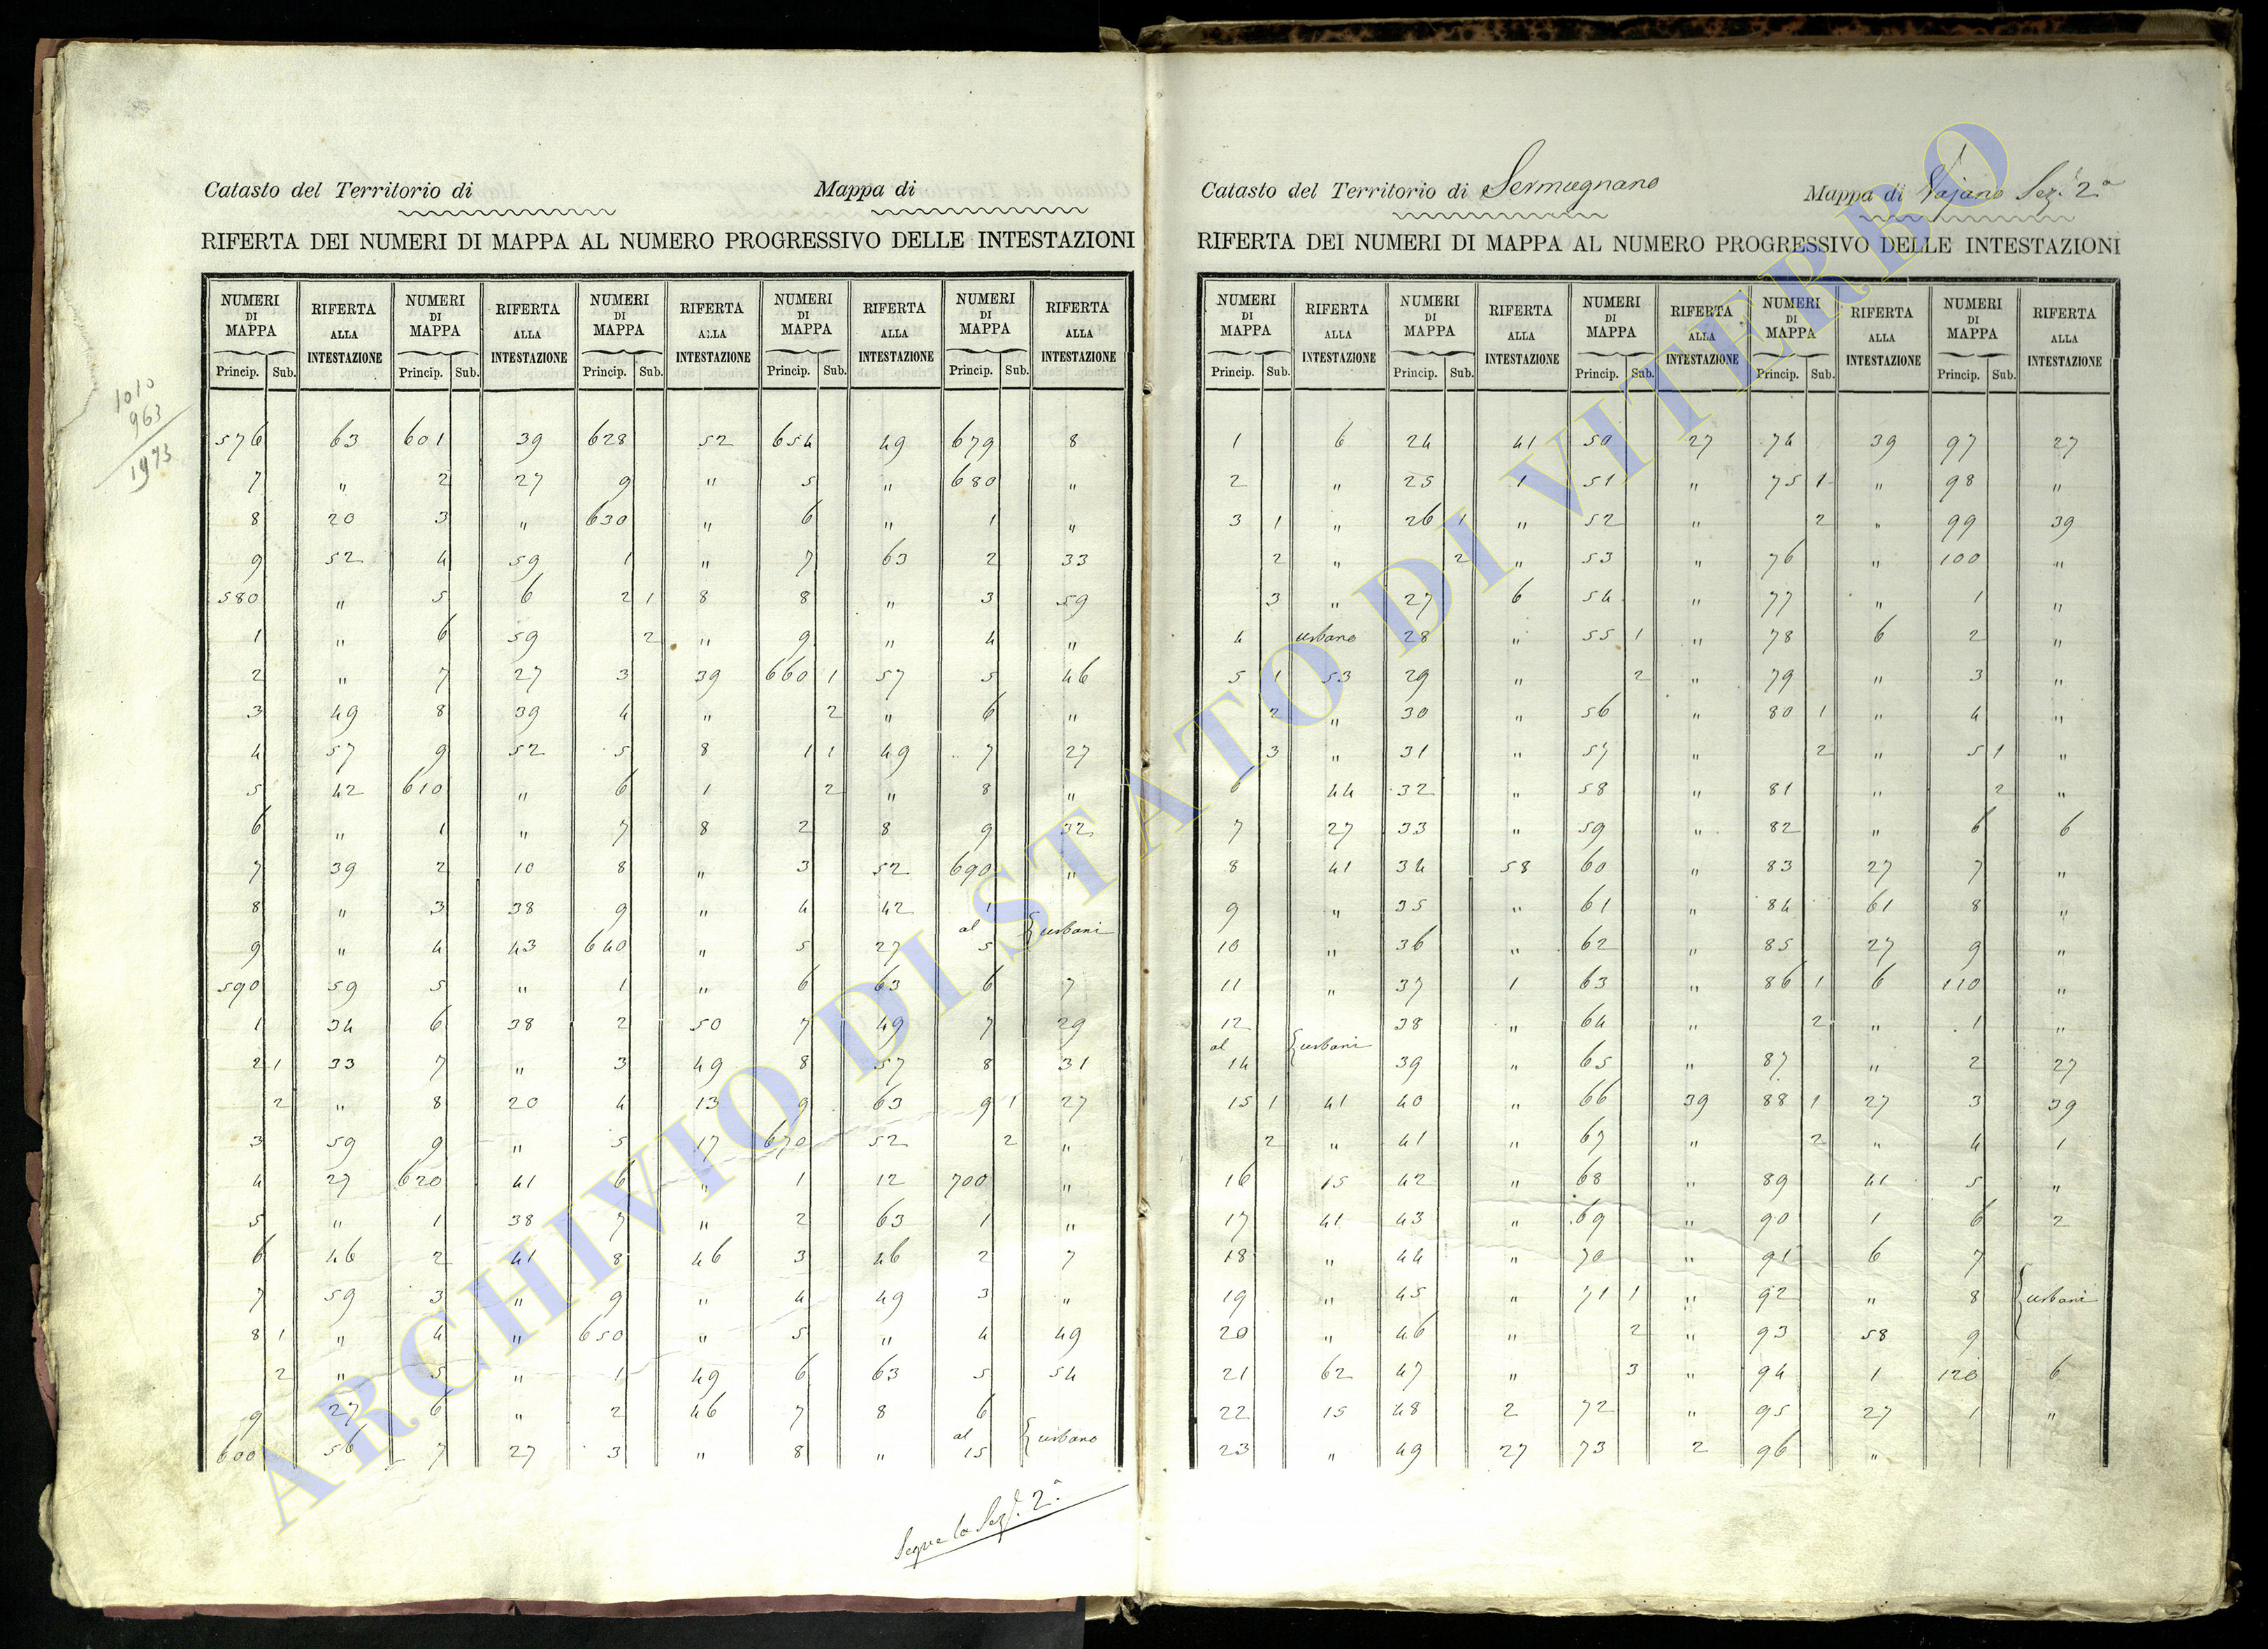 Catasto del Territorio di Mappa di
RIFERTA DEI NUMERI DI MAPPA AL NUMERO PROGRESSIVO DELLE INTESTAZIONI
NUMERI DI MAPPA RIFERTA ALLA INTESTAZIONE NUMERI DI MAPPA RIFERTA ALLA INTESTAZIONE NUMERI DI MAPPA RIFERTA ALLA INTESTAZIONE NUMERI DI MAPPA RIFERTA ALLA INTESTAZIONE NUMERI DI MAPPA RIFERTA ALLA INTESTAZIONE
Princip. Sub. Princip. Sub. Princip. Sub. Princip. Sub. Princip. Sub.
1010
963
1973
576 63 601 39 628 52 654 49 679 8
7 " 2 27 9 " 5 " 680 "
8 20 3 " 630 " 6 " 1 "
9 52 4 59 1 " 7 63 2 33
580 " 5 6 2 1 8 8 " 3 59
1 " 6 59 2 " 9 " 4 "
2 " 7 27 3 39 660 1 57 5 46
3 49 8 39 4 " 2 " 6 "
4 57 9 52 5 8 1 1 49 7 27
5 42 610 " 6 1 2 " 8 "
6 " 1 " 7 8 2 8 9 32
7 39 2 10 8 " 3 52 690 "
8 " 3 38 9 " 4 42 1
al urbani
9 " 4 43 640 " 5 27 5
590 59 5 " 1 " 6 63 6 7
1 34 6 38 2 50 7 49 7 29
2 1 33 7 " 3 49 8 57 8 31
2 " 8 20 4 13 9 63 9 1 27
3 59 9 " 5 17 670 52 2 "
4 27 620 41 6 " 1 12 700 "
5 " 1 38 7 " 2 63 1 "
6 46 2 41 8 46 3 46 2 7
7 59 3 " 9 " 4 49 3 "
8 1 " 4 " 650 " 5 " 4 49
2 " 5 " 1 49 6 63 5 54
9 27 6 " 2 46 7 8 6
al urbano
600 56 7 27 3 " 8 " 15
Segue la Sez. 2ª
Catasto del Territorio di Sermugnano Mappa di Vajano Sez. 2a
RIFERTA DEI NUMERI DI MAPPA AL NUMERO PROGRESSIVO DELLE INTESTAZIONI
NUMERI DI MAPPA RIFERTA ALLA INTESTAZIONE NUMERI DI MAPPA RIFERTA ALLA INTESTAZIONE NUMERI DI MAPPA RIFERTA ALLA INTESTAZIONE NUMERI DI MAPPA RIFERTA ALLA INTESTAZIONE NUMERI DI MAPPA RIFERTA ALLA INTESTAZIONE
Princip. Sub. Princip. Sub. Princip. Sub. Princip. Sub. Princip. Sub.
1 6 24 41 50 27 74 39 97 27
2 " 25 1 51 " 75 1 " 98 "
3 1 " 26 1 " 52 " 2 " 99 39
2 " 2 " 53 " 76 " 100 "
3 " 27 6 54 " 77 " 1 "
4 urbano 28 " 55 1 " 78 6 2 "
5 1 53 29 " 2 " 79 " 3 "
2 " 30 " 56 " 80 1 " 4 "
3 " 31 " 57 " 2 " 5 1 "
6 44 32 " 58 " 81 " 2 "
7 27 33 " 59 " 82 " 6 6
8 41 34 58 60 " 83 27 7 "
9 " 35 " 61 " 84 61 8 "
10 " 36 " 62 " 85 27 9 "
11 " 37 1 63 " 86 1 6 110 "
12 38 " 64 " 2 " 1 "
al urbani
14 39 " 65 " 87 " 2 27
15 1 41 40 " 66 39 88 1 27 3 39
2 " 41 " 67 " 2 " 4 1
16 15 42 " 68 " 89 41 5 "
17 41 43 " 69 " 90 1 6 2
18 " 44 " 70 " 91 6 7
19 " 45 " 71 1 " 92 " 8 urbani
20 " 46 " 2 " 93 58 9
21 62 47 " 3 " 94 1 120 6
22 15 48 2 72 " 95 27 1 "
23 " 49 27 73 2 96 "
ARCHIVIO DI STATO DI VITERBO